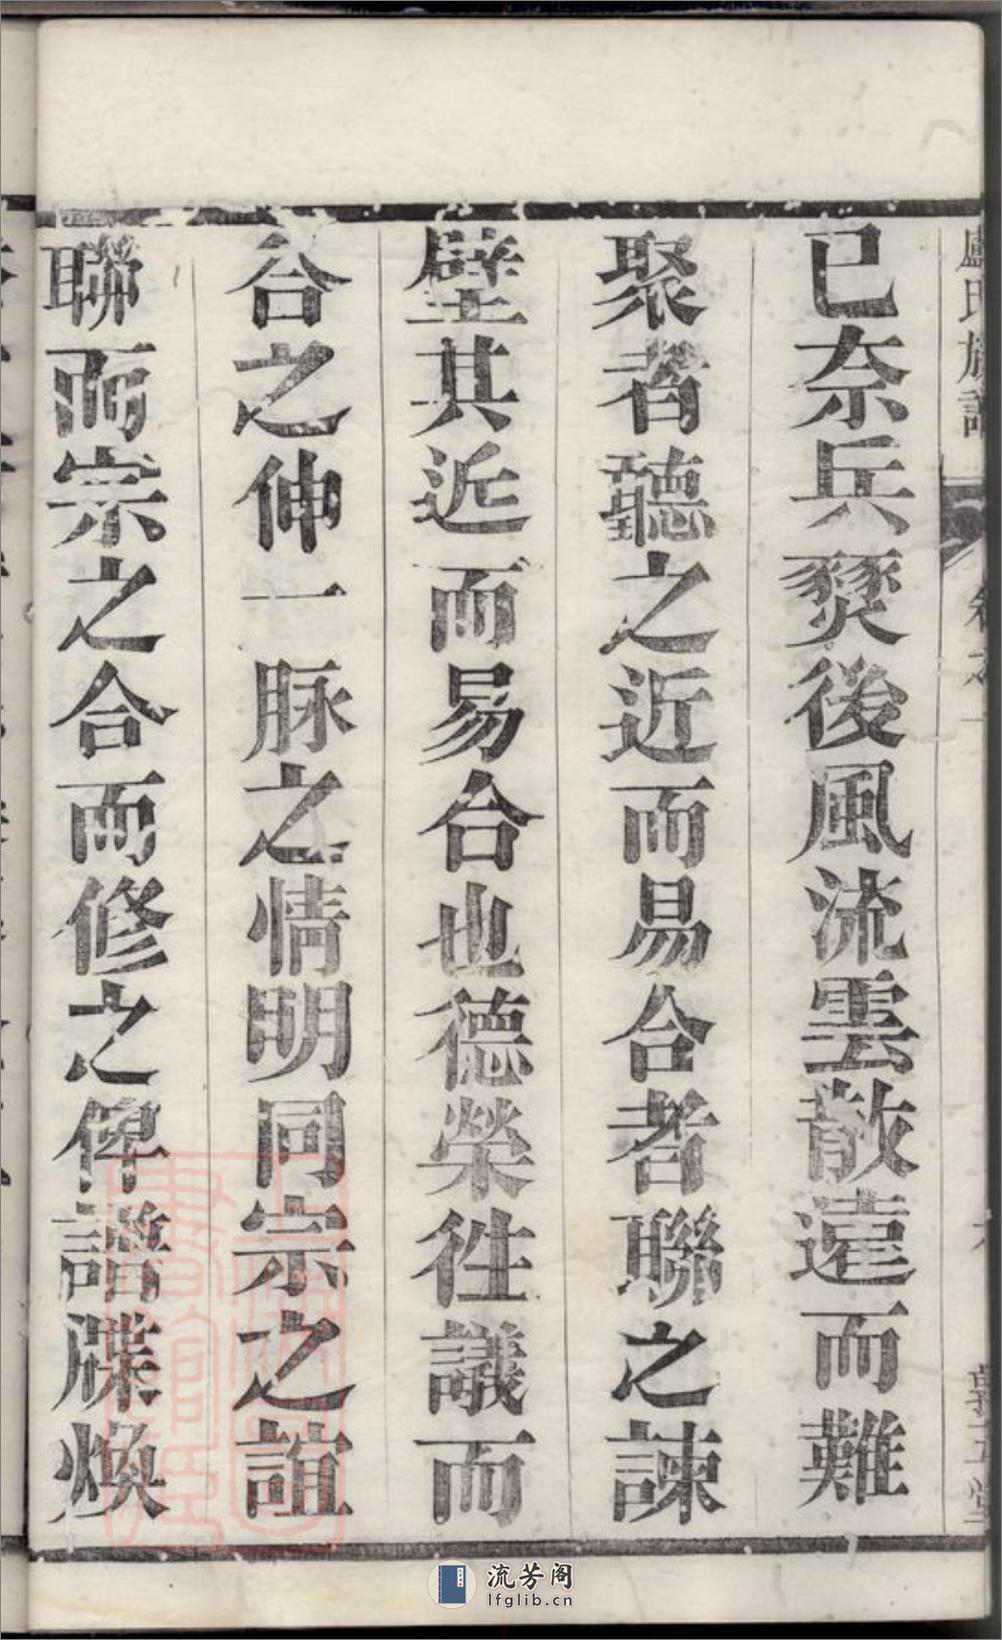 盧氏族譜
卷之一
已奈兵燹後風流雲散遠而難
聚者聽之近而易合者聯之諫
壁其近而易合也德榮徃議而
谷之伸一脉之情明同宗之誼
聯而宗之合而修之俾譜牒煥
流芳阁
lfglib.cn